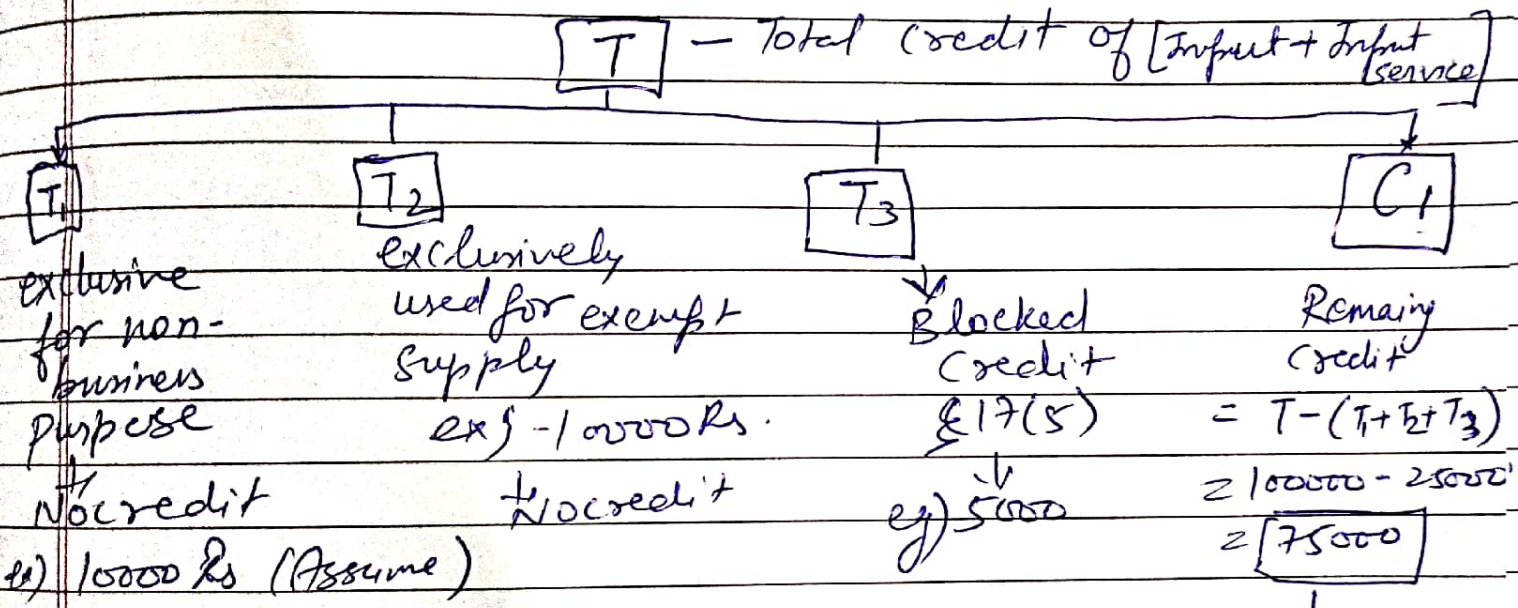 T - Total credit of [Input + Input
service]
T1
exclusive
for non-
business
purpose
Nocredit
ex) 10000 Rs (Assume)
T2
exclusively
used for exempt
supply
ex) - 10000 Rs.
Nocredit
T3
Blocked
Credit
17(5)
eg) 5000
C1
Remaing
Credit
= T-(T1+T2+T3)
= 100000 - 25000
= 75000